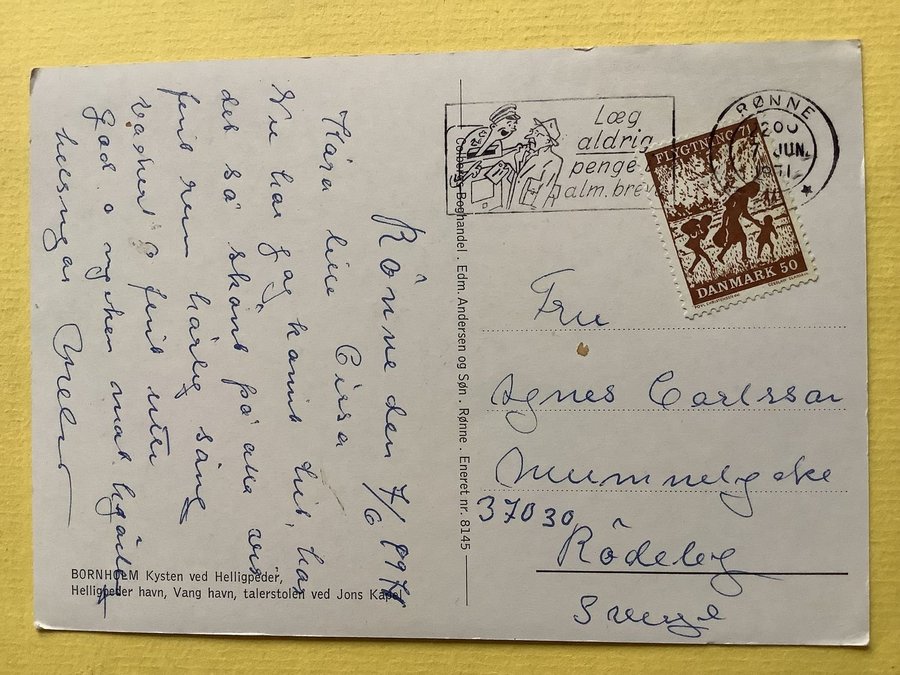 Rönne den 7/6 1971
Kära
lilla Cirsa
Nu har jag kommit hit, har
det så skönt på alla vis
fint rum härlig säng
vädret o fint
God o mycken mat
Læg
aldrig
penge i
alm. breve
RØNNE
JUN.
FLYGTNING 71
DANMARK 50
Fru
Agnes Carlsson
37030
Rödeby
Sverige
Colbergs Boghandel . Edm. Andersen og Søn . Rønne . Eneret nr. 8145
BORNHOLM Kysten ved Helligpeder,
Helligpeder havn, Vang havn, talerstolen ved Jons Kapel